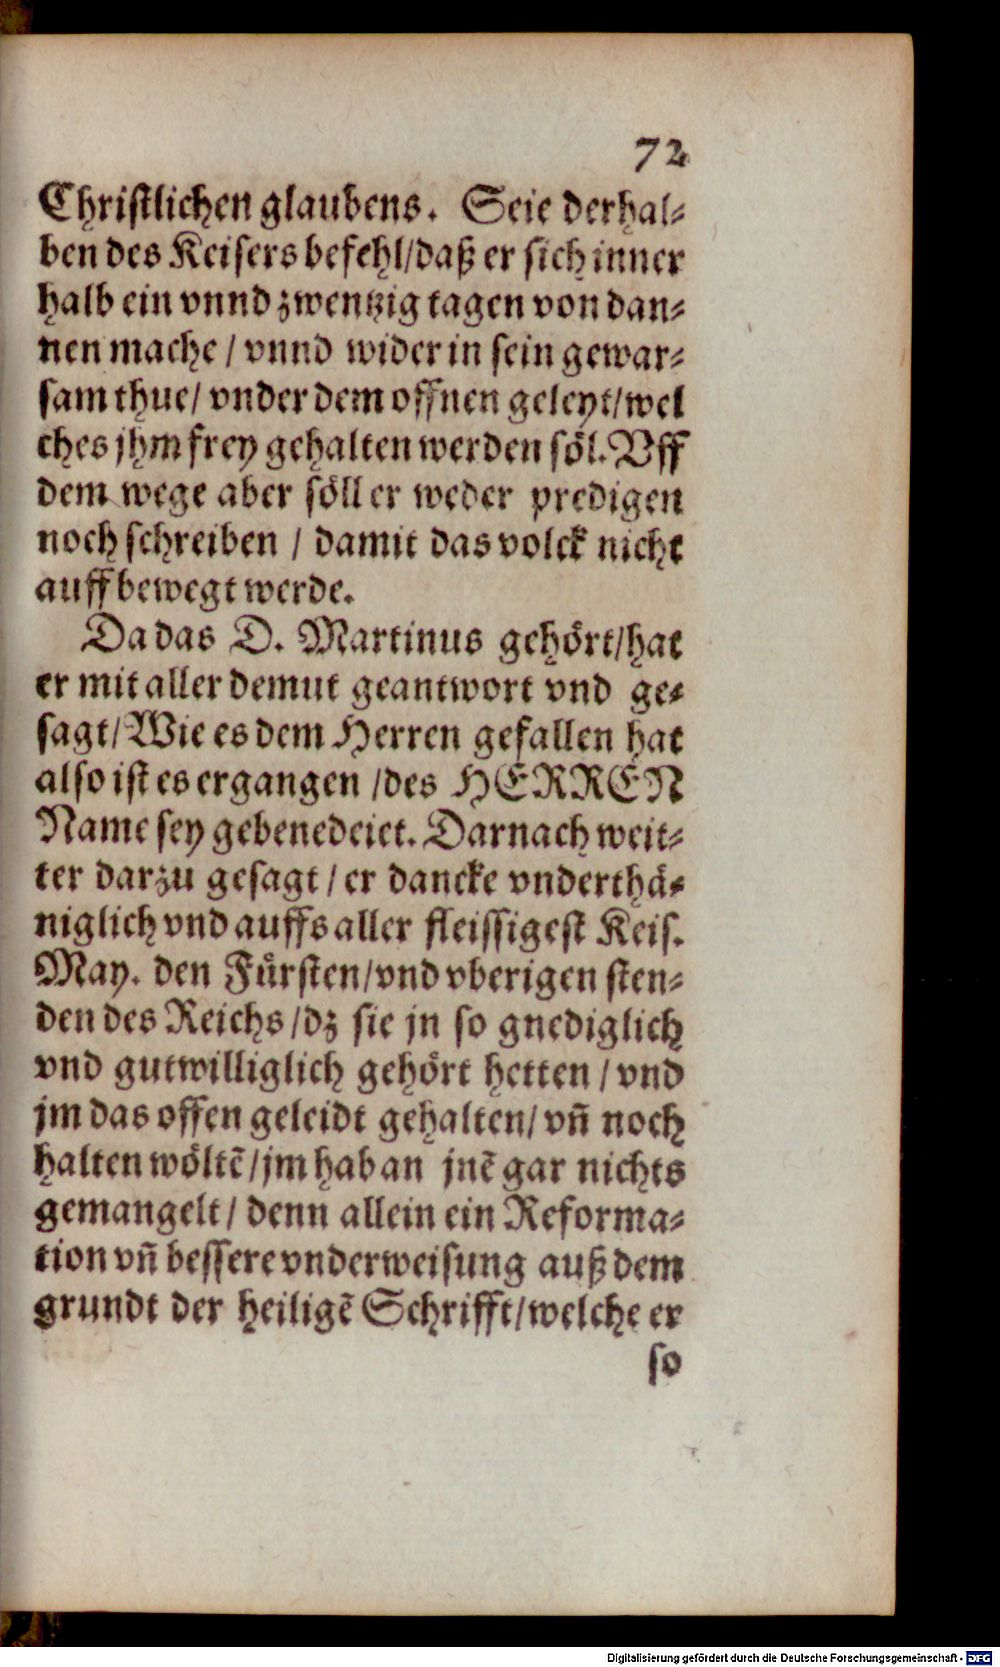 72
Christlichen glaubens. Seie derhal-
ben des Keisers befehl/daß er sich inner
halb ein vnnd zwentzig tagen von dan-
nen mache / vnnd wider in sein gewar-
sam thue/ vnder dem offnen geleyt/wel
ches jhm frey gehalten werden söl. Vff
dem wege aber söll er weder predigen
noch schreiben / damit das volck nicht
auffbewegt werde.
Da das D. Martinus gehört/hat
er mit aller demut geantwort vnd ge-
sagt/Wie es dem Herren gefallen hat
also ist es ergangen /des HERREN
Name sey gebenedeiet. Darnach weit-
ter darzu gesagt / er dancke vnderthä-
niglich vnd auffs aller fleissigest Keis.
May. den Fürsten/vnd vberigen sten-
den des Reichs/dz sie jn so gnediglich
vnd gutwilliglich gehört hetten / vnd
jm das offen geleidt gehalten/ vñ noch
halten wöltē/jm hab an jnē gar nichts
gemangelt/ denn allein ein Reforma-
tion vñ bessere vnderweisung auß dem
grundt der heiligē Schrifft/welche er
so
Digitalisierung gefördert durch die Deutsche Forschungsgemeinschaft - DFG